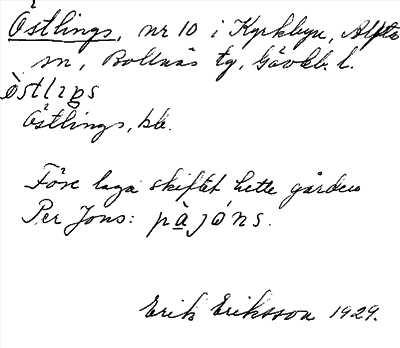 Östlings, nr 10 i Kyrkbyn, Alfta
sn, Bollnäs tg, Gävleb. l.
òstlıŋs
Östlings, bb.
Före laga skiftet hette gården
Per Jons: pàjóns.
Erik Eriksson 1929.